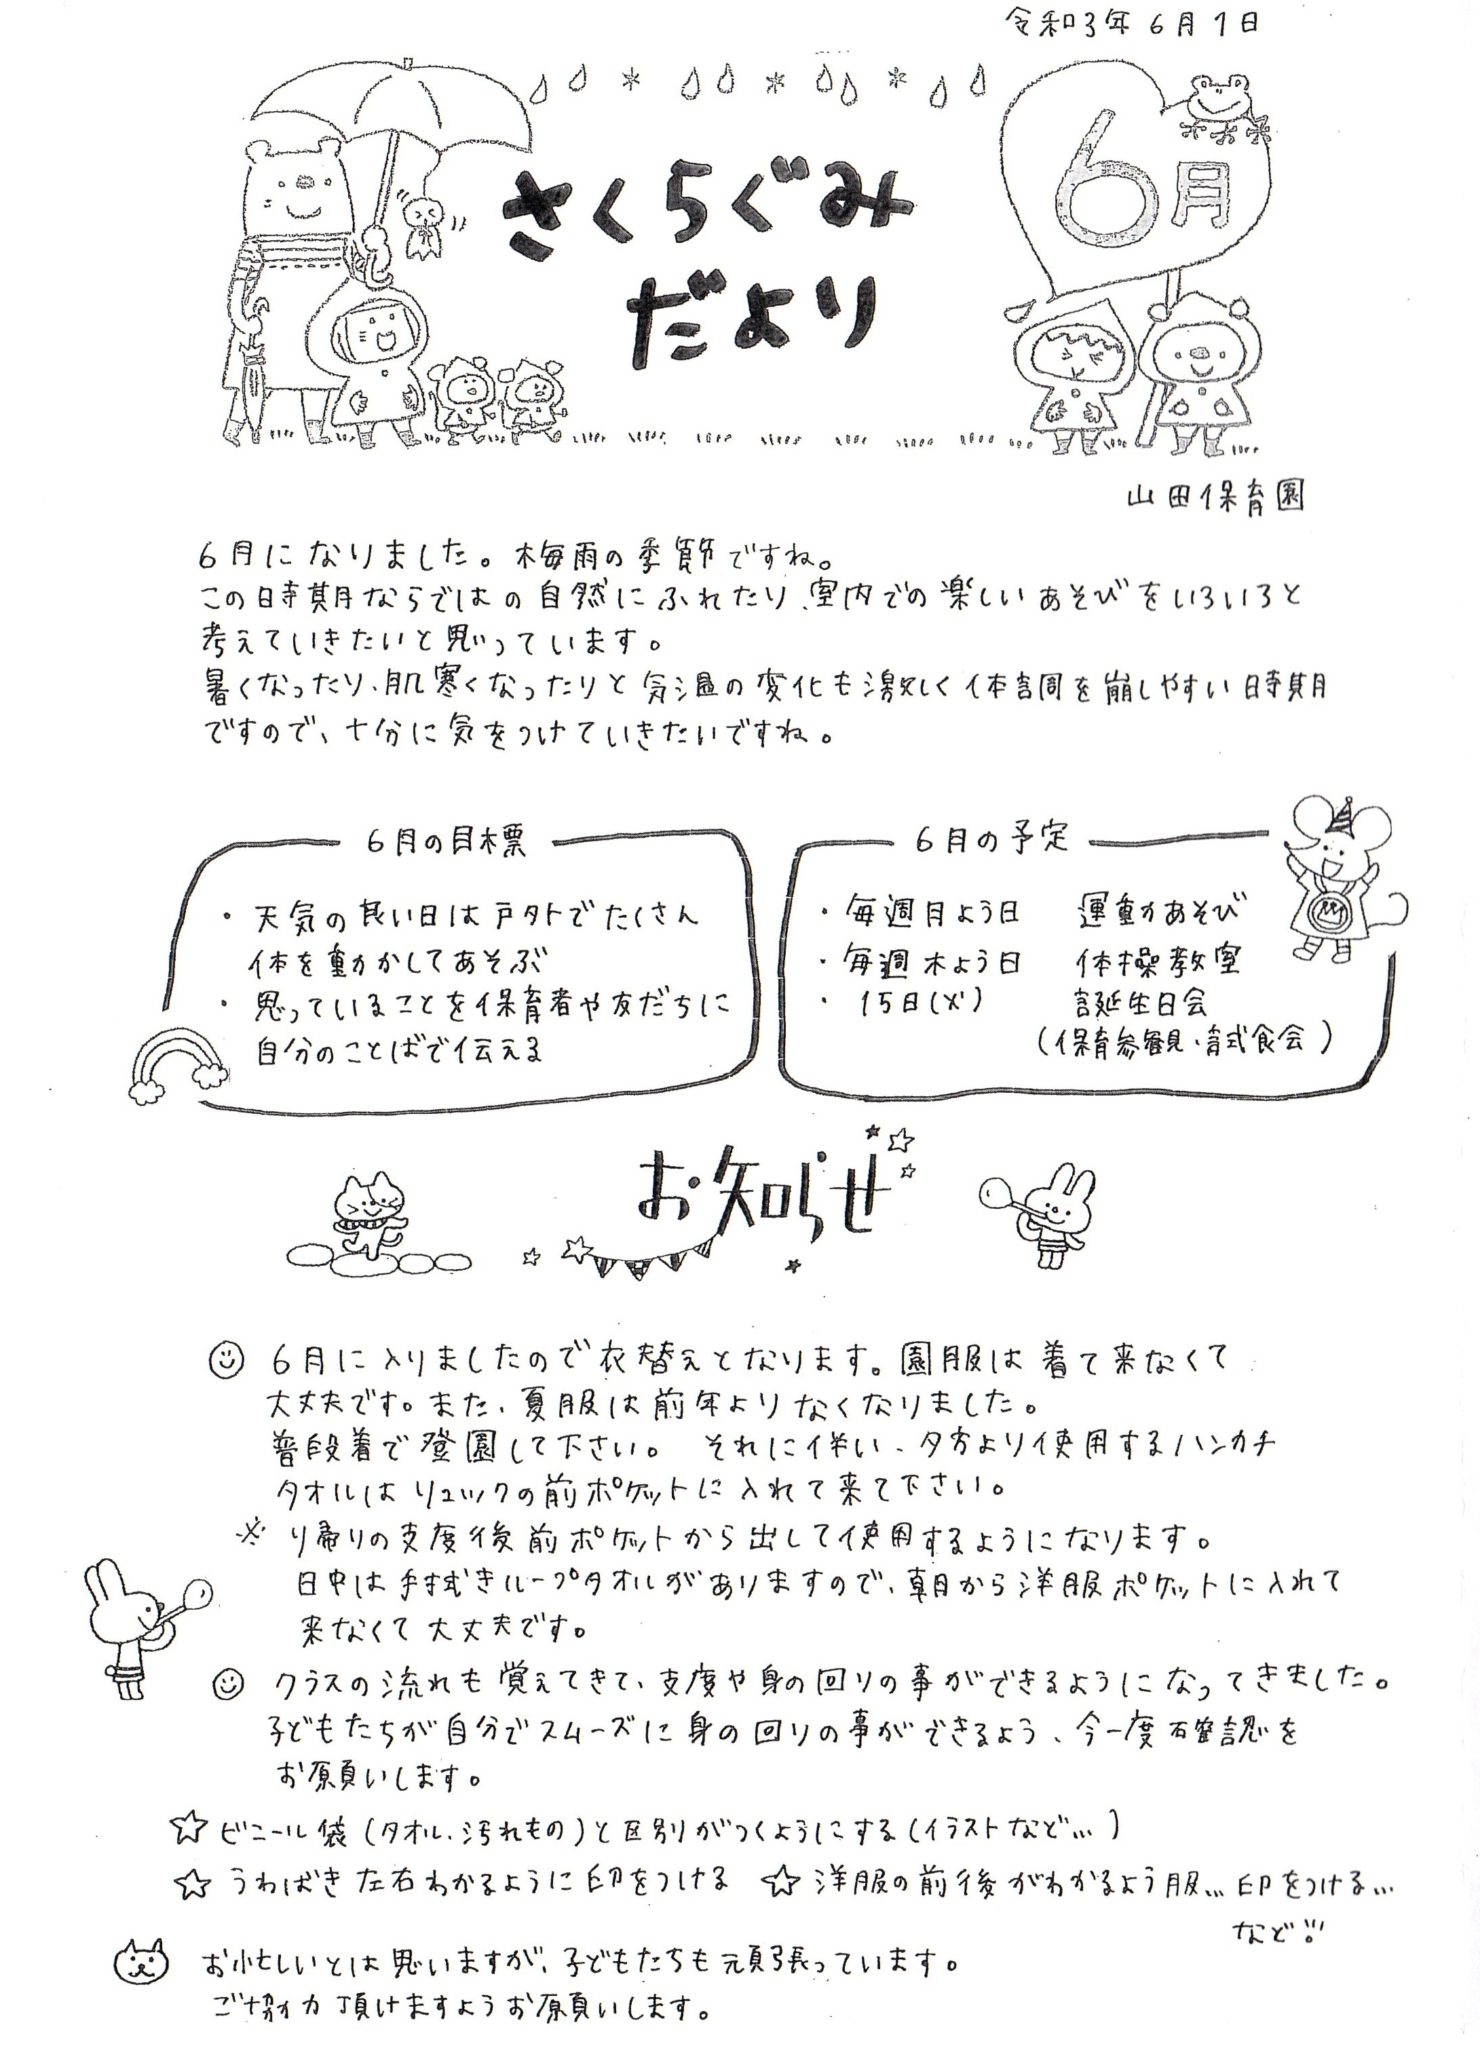 令和3年6月1日
6月
さくらぐみ
だより
山田保育園
6月になりました。梅雨の季節ですね。
この時期ならではの自然にふれたり、室内での楽しいあそびをいろいろと
考えていきたいと思っています。
暑くなったり、肌寒くなったりと気温の変化も激しく体調を崩しやすい時期
ですので、十分に気をつけていきたいですね。
6月の目標
・天気の良い日は戸外でたくさん
体を動かしてあそぶ
・思っていることを保育者や友だちに
自分のことばで伝える
6月の予定
・毎週月よう日 運動あそび
・毎週木よう日 体操教室
・15日(火) 誕生日会
(保育参観、試食会)
お知らせ
6月に入りましたので衣替えとなります。園服は着て来なくて
大丈夫です。また、夏服は前年よりなくなりました。
普段着で登園して下さい。 それに伴い、夕方より使用するハンカチ
タオルはリュックの前ポケットに入れて来て下さい。
※ り帰りの支度後前ポケットから出して使用するようになります。
日中は手ふきループタオルがありますので、朝から洋服ポケットに入れて
来なくて大丈夫です。
クラスの流れも覚えてきて、支度や身の回りの事ができるようになってきました。
子どもたちが自分でスムーズに身の回りの事ができるよう、今一度確認を
お願いします。
☆ビニール袋(タオル、汚れもの)と区別がつくようにする(イラストなど…)
☆うわばき左右わかるように印をつける ☆洋服の前後がわかるよう服…印をつける…
など!!
お忙しいとは思いますが、子どもたちも頑張っています。
ご協力頂けますようお願いします。